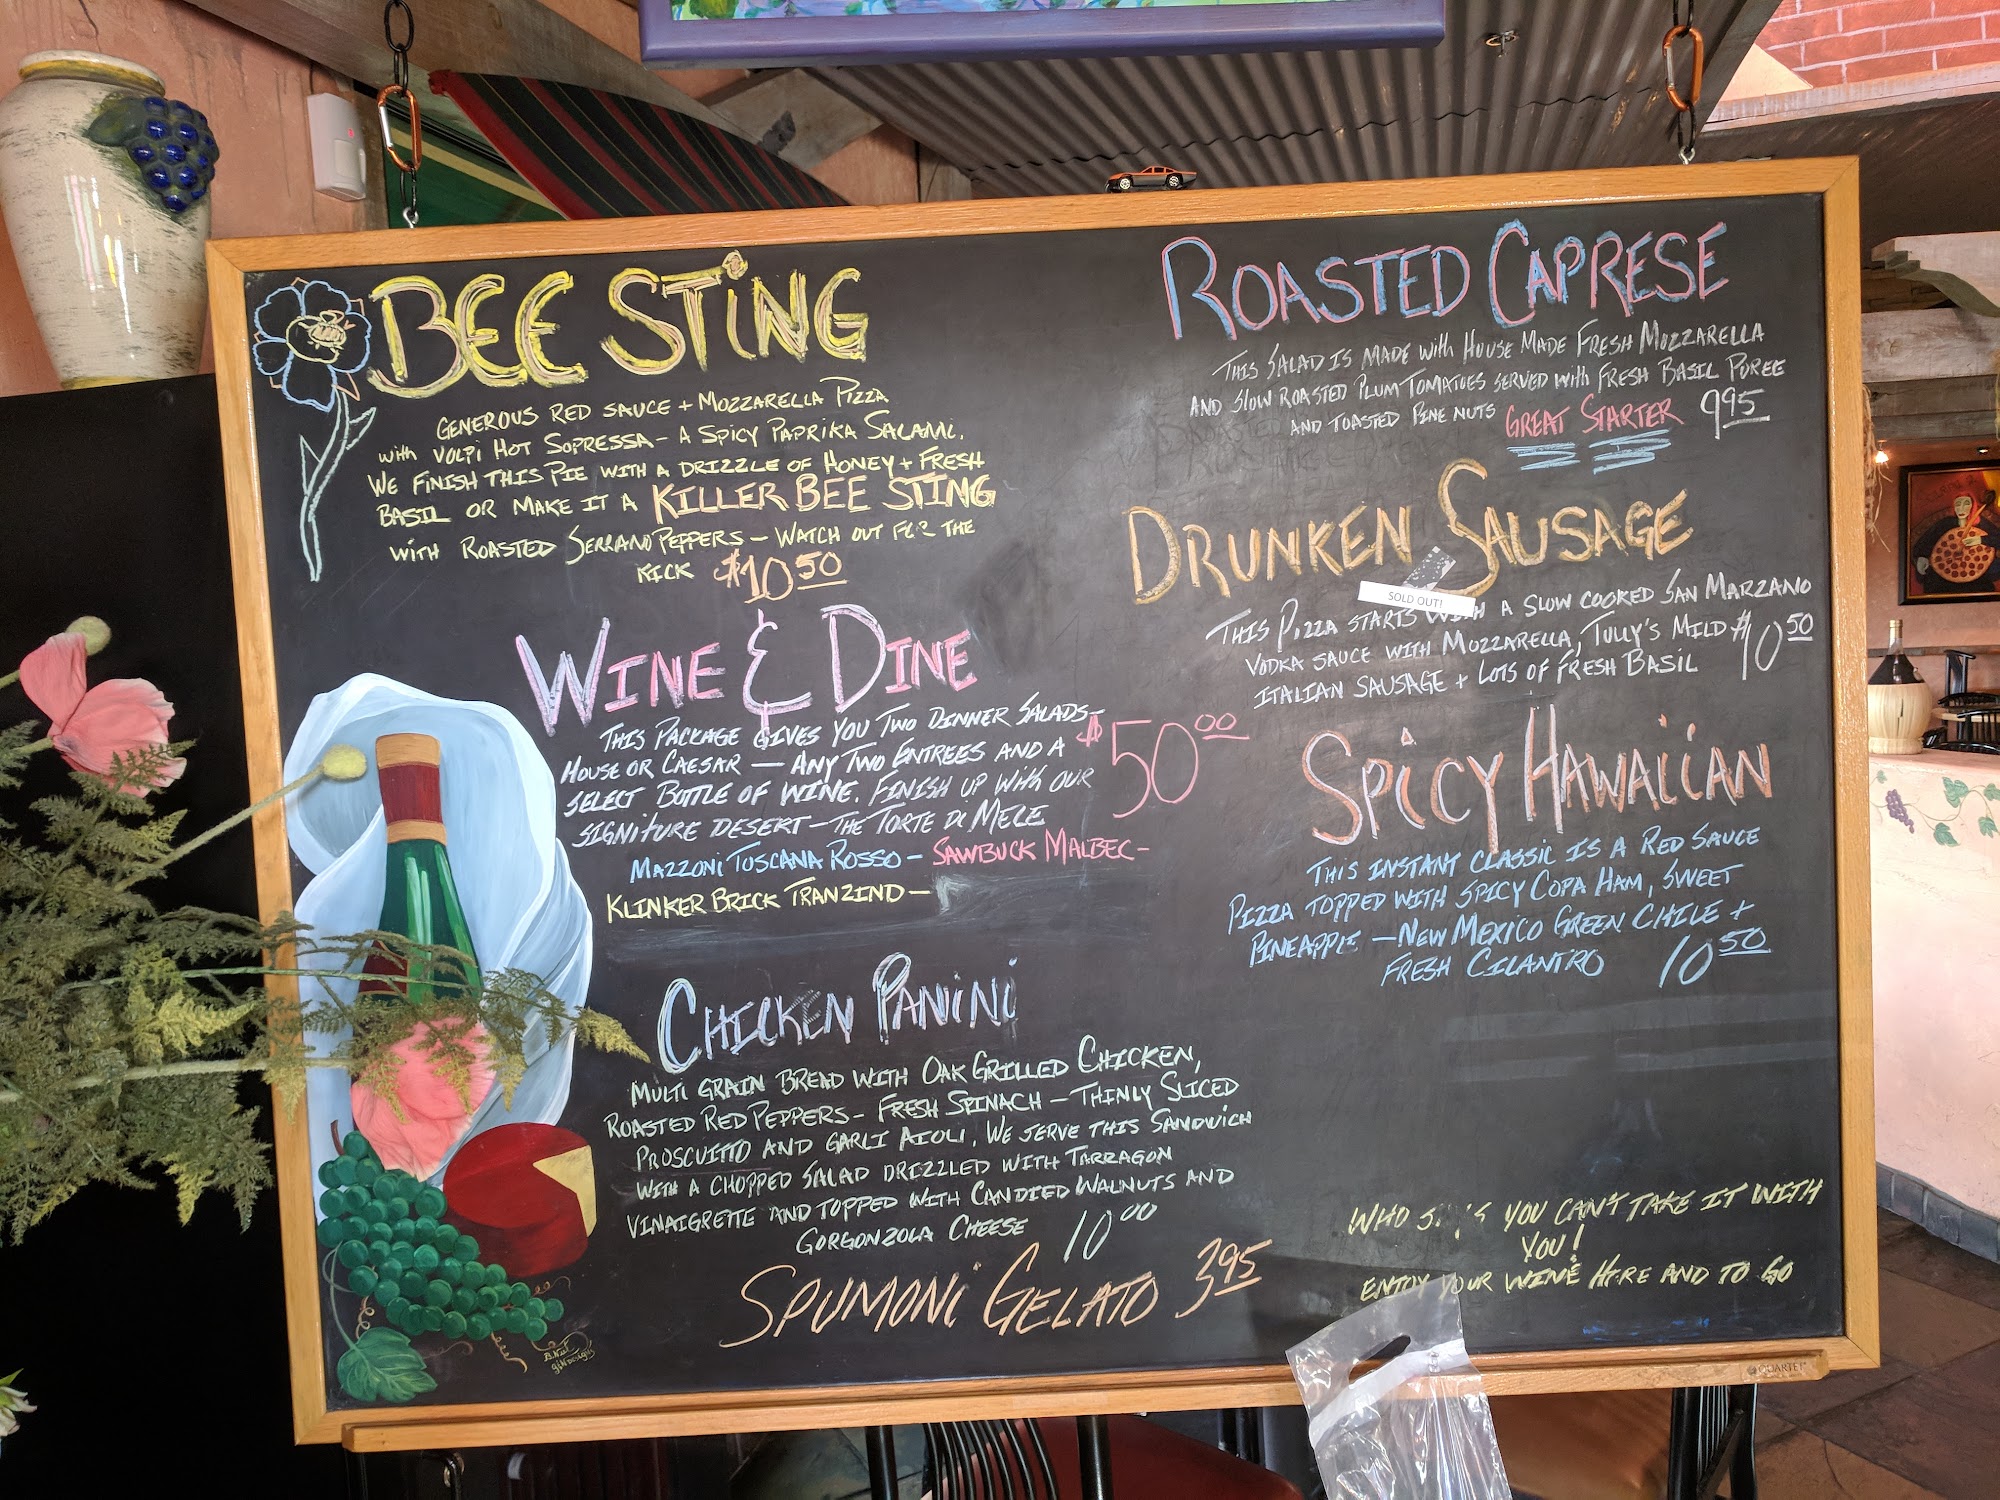 BEE STING
GENEROUS RED SAUCE + MOZZARELLA PIZZA
with VOLPI HOT SOPRESSA - A SPICY PAPRIKA SALAMI.
WE FINISH THIS PIE WITH A DRIZZLE OF HONEY + FRESH
BASIL OR MAKE IT A KILLER BEE STING
WITH ROASTED SERRANO PEPPERS - WATCH OUT FOR THE
KICK $10.50
WINE & DINE
THIS PACKAGE GIVES YOU TWO DINNER SALADS -
HOUSE OR CAESAR - ANY TWO ENTREES AND A
SELECT BOTTLE OF WINE. FINISH UP WITH OUR
SIGNITURE DESERT - THE TORTE DI MELE
$50.00
MAZZONI TUSCANA ROSSO - SAWBUCK MALBEC -
KLINKER BRICK TRANZIND -
CHICKEN PANINI
MULTI GRAIN BREAD WITH OAK GRILLED CHICKEN,
ROASTED RED PEPPERS - FRESH SPINACH - THINLY SLICED
PROSCUITTO AND GARLI AIOLI. WE SERVE THIS SANDWICH
WITH A CHOPPED SALAD DRIZZLED WITH TARRAGON
VINAIGRETTE AND TOPPED WITH CANDIED WALNUTS AND
GORGONZOLA CHEESE 10.00
SPUMONI GELATO 3.95
ROASTED CAPRESE
THIS SALAD IS MADE WITH HOUSE MADE FRESH MOZZARELLA
AND SLOW ROASTED PLUM TOMATOES SERVED WITH FRESH BASIL PUREE
AND TOASTED PINE NUTS GREAT STARTER 9.95
DRUNKEN SAUSAGE
SOLD OUT!
THIS PIZZA STARTS WITH A SLOW COOKED SAN MARZANO
VODKA SAUCE WITH MOZZARELLA, TULLY'S MILD
ITALIAN SAUSAGE + LOTS OF FRESH BASIL $10.50
SPICY HAWAIIAN
THIS INSTANT CLASSIC IS A RED SAUCE
PIZZA TOPPED WITH SPICY COPA HAM, SWEET
PINEAPPLE - NEW MEXICO GREEN CHILE +
FRESH CILANTRO 10.50
WHO SAYS YOU CAN'T TAKE IT WITH
YOU!
ENJOY YOUR WINE HERE AND TO GO
QUARTET